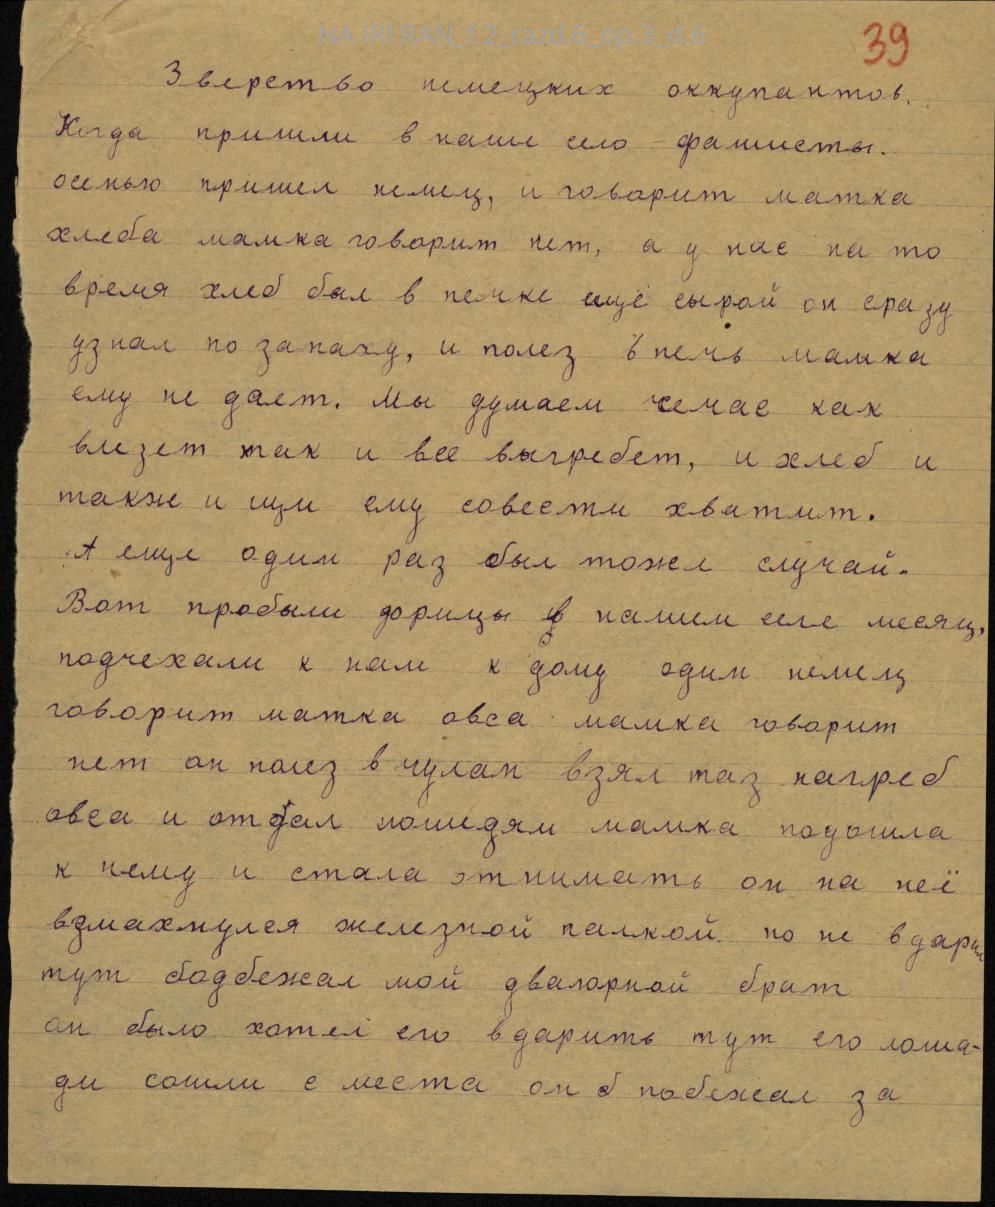 NA IRI RAN_f.2_razd.6_op.3_d.6
39
Зверство немецких оккупантов.
Когда пришли в наше село фашисты.
осенью пришел немец, и говорит матка
хлеба мамка говорит нет, а у нас на то
время хлеб был в печке ещё сырой он сразу
узнал по запаху, и полез в печь мамка
ему не дает. Мы думаем чечас как
влезет так и все выгребет, и хлеб и
такж и щи ему совести хватит.
А еще один раз был тоже случай.
Вот пробыли фрицы в нашем селе месяц,
подчехали к нам к дому один немец
говорит матка овса мамка говорит
нет он полез в чулан взял таз нагреб
овса и отдал лошедям мамка подошла
к нему и стала отнимать он на неё
взмахнулся железной палкой но не вдарил
тут бодбежал мой двагорной брат
он было хотел его вдарить тут его лоша-
ди сошли с места он побежал за